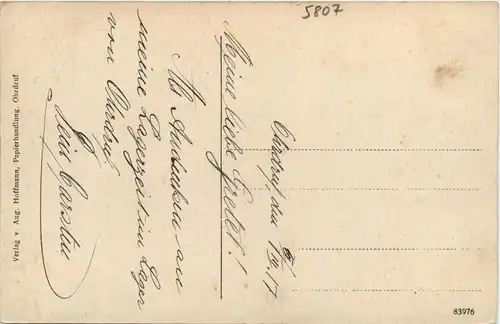 5807
Ohrdruf, den
Meine liebe Gretel!
Als Andenken an
meine Lagerzeit im Lager
von Ohrdruf
Dein Carstin
Verlag v. Aug. Hoffmann, Papierhandlung, Ohrdruf
83976